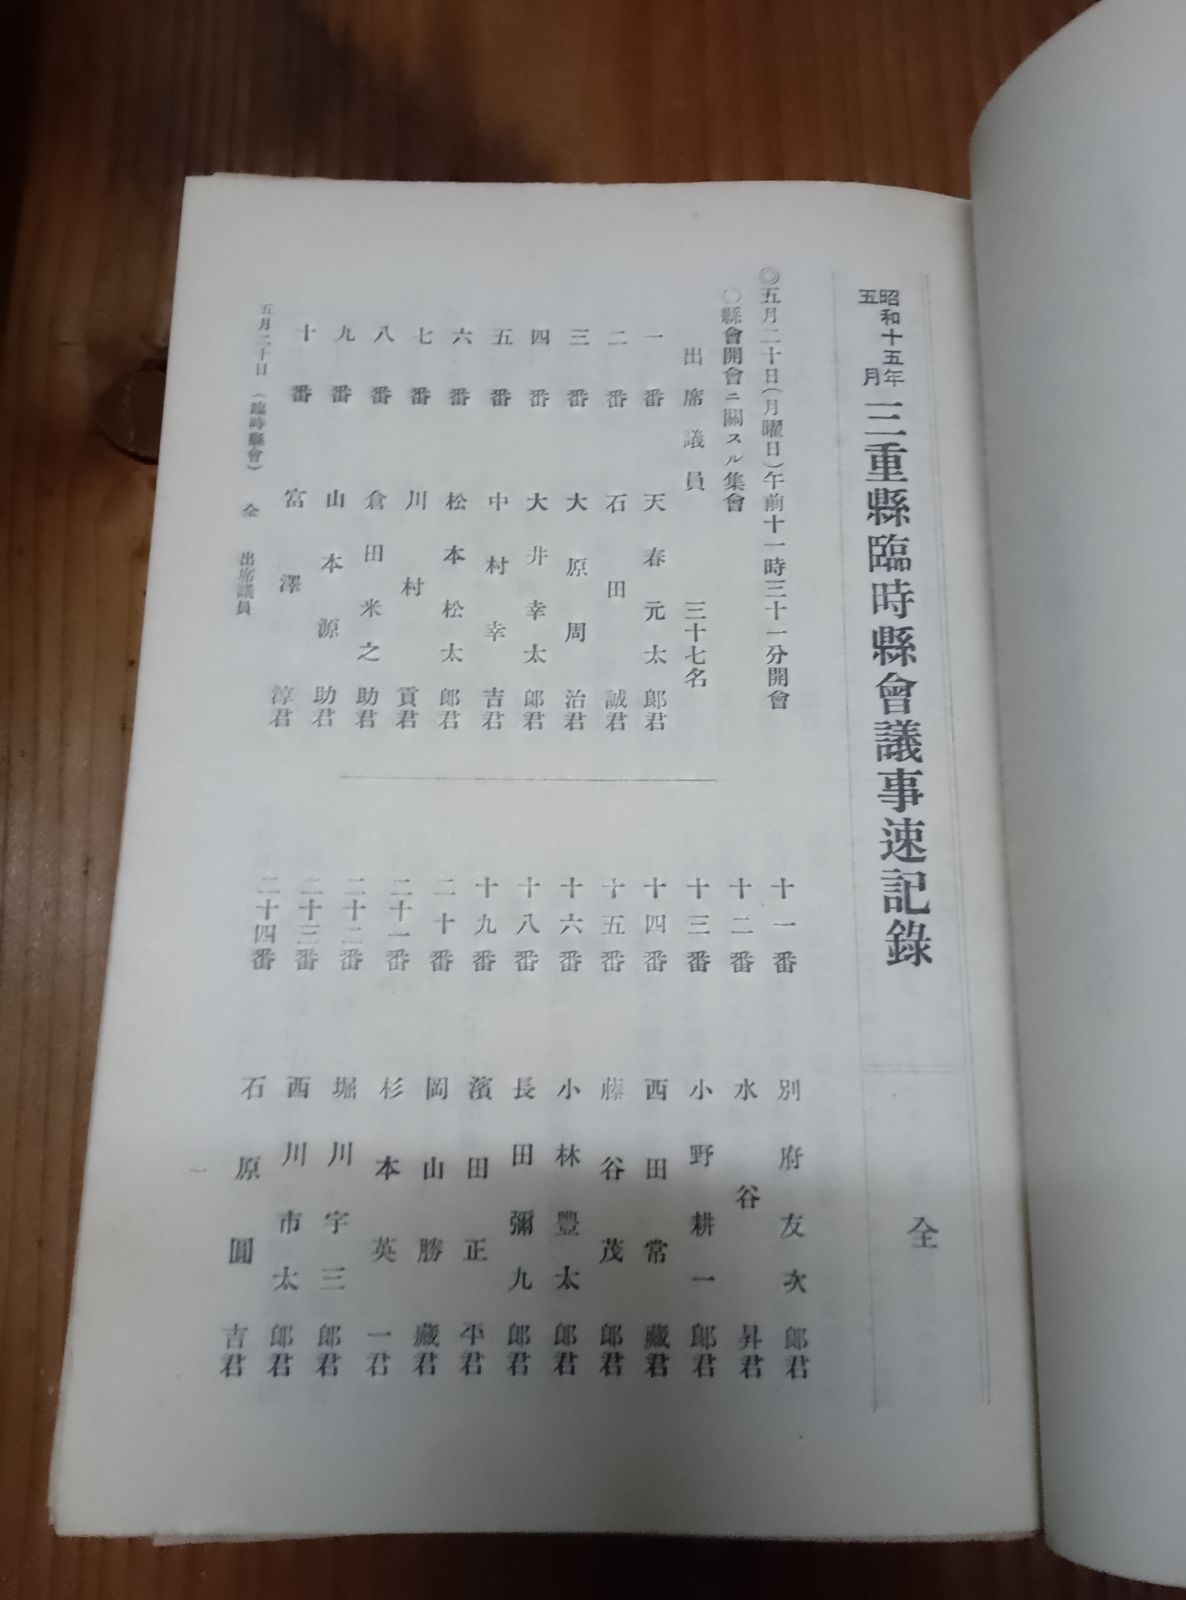 昭和十五年
五月
三重縣臨時縣會議事速記錄
全
◎五月二十日(月曜日)午前十一時三十一分開會
○縣會開會ニ關スル集會
出席議員 三十七名
一番 天春元太郎君
二番 石田誠君
三番 大原周治君
四番 大井幸太郎君
五番 中村幸吉君
六番 松本松太郎君
七番 川村貢君
八番 倉田米之助君
九番 山本源助君
十番 富澤淳君
十一番 別府友次郎君
十二番 水谷昇君
十三番 小野耕一郎君
十四番 西田常藏君
十五番 藤谷茂郎君
十六番 小林豐太郎君
十八番 長田彌九郎君
十九番 濱田正平君
二十番 岡山勝藏君
二十一番 杉本英一君
二十二番 堀川宇三郎君
二十三番 西川市太郎君
二十四番 石原圓吉君
五月二十日(臨時縣會) 全 出席議員
一